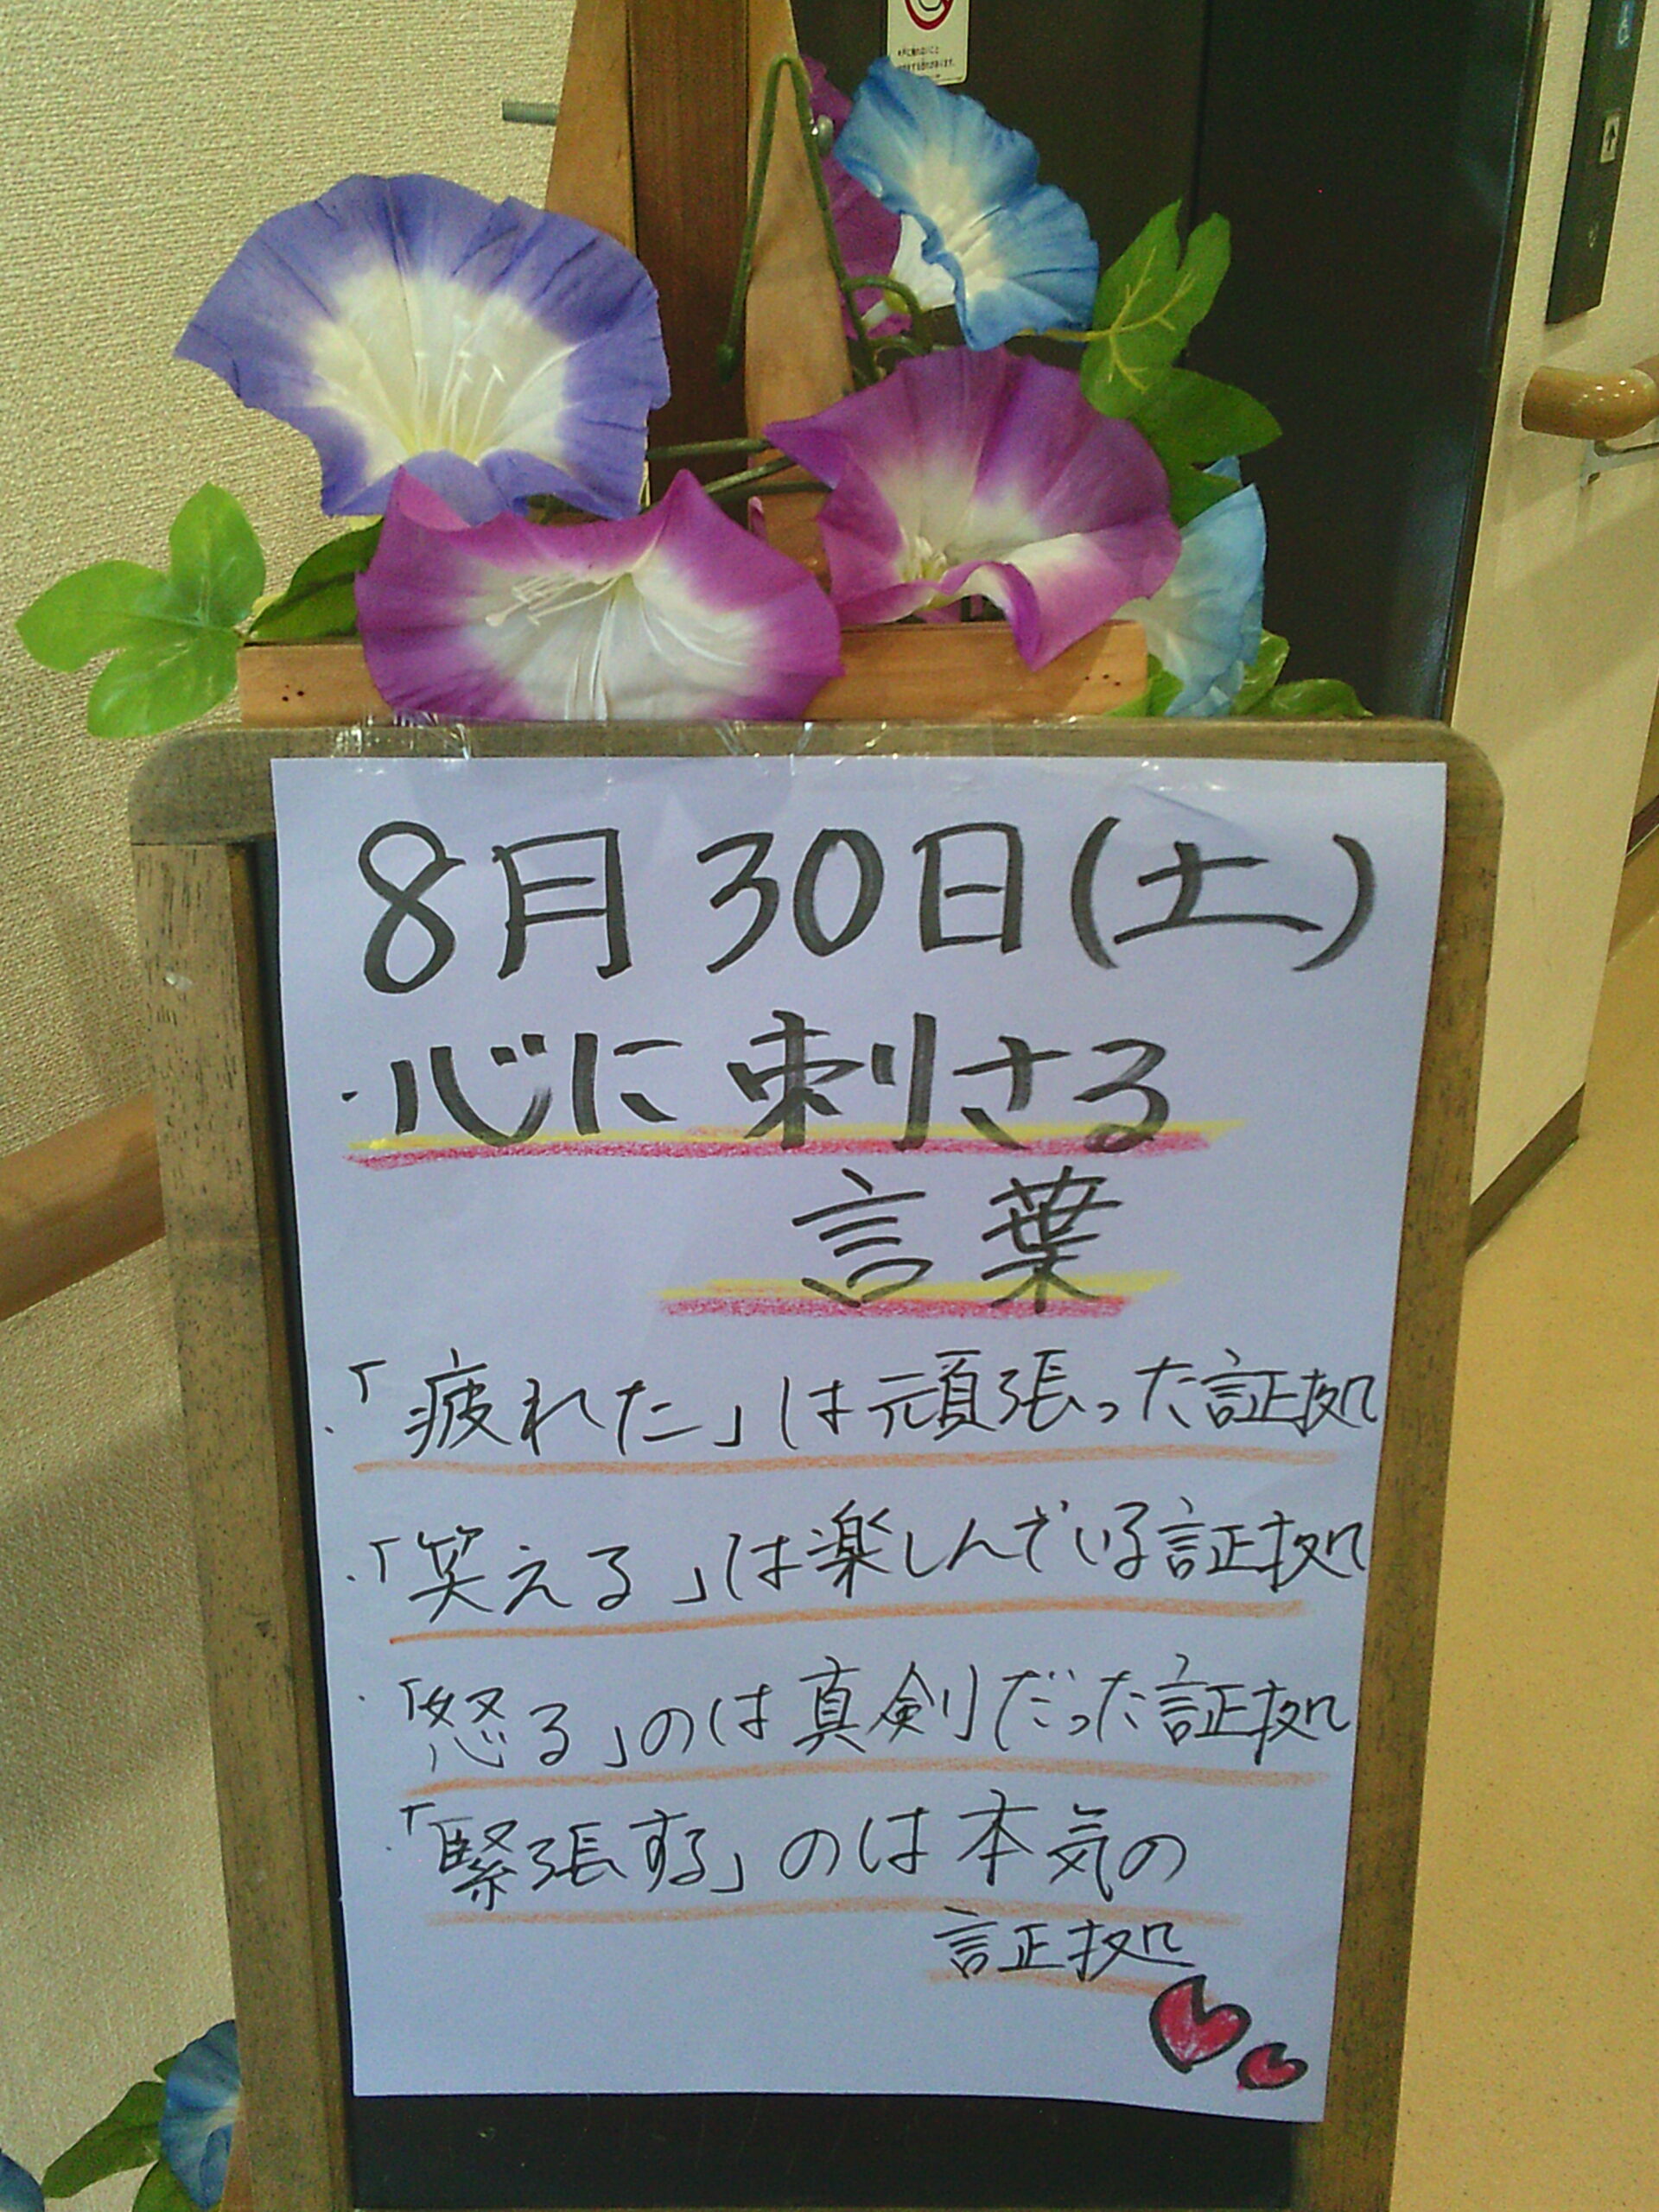 8月30日(土)
・心に刺さる
言葉
・「疲れた」は頑張った証拠
・「笑える」は楽しんでいる証拠
・「怒る」のは真剣だった証拠
・「緊張する」のは本気の
証拠